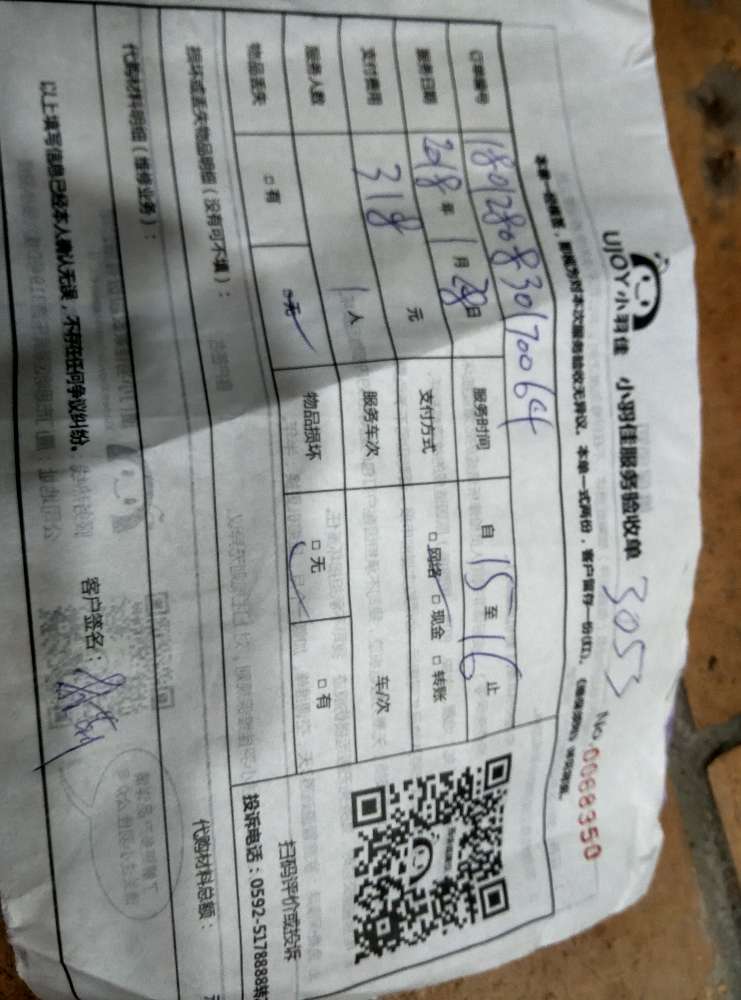 UJOY小羽佳 小羽佳服务验收单 3053
No 0068350
本单一经签署，即视为对本次服务验收无异议。本单一式两份，客户留存一份(红)。
订单编号 1801280830170064
服务日期 2018年1月28日 服务时间 自15至16止
支付费用 318元 支付方式 □网络 □现金 □转账
服务人数 1人 服务车次 车/次
物品丢失 □有 □无 物品损坏 □无 □有
扫码评价或投诉
投诉电话：0592-5178888转
损坏或丢失物品明细（没有可不填）：
代购材料明细（维修业务）： 代购材料总额： 元
以上填写信息已经本人确认无误，不存在任何争议纠纷。 客户签名：